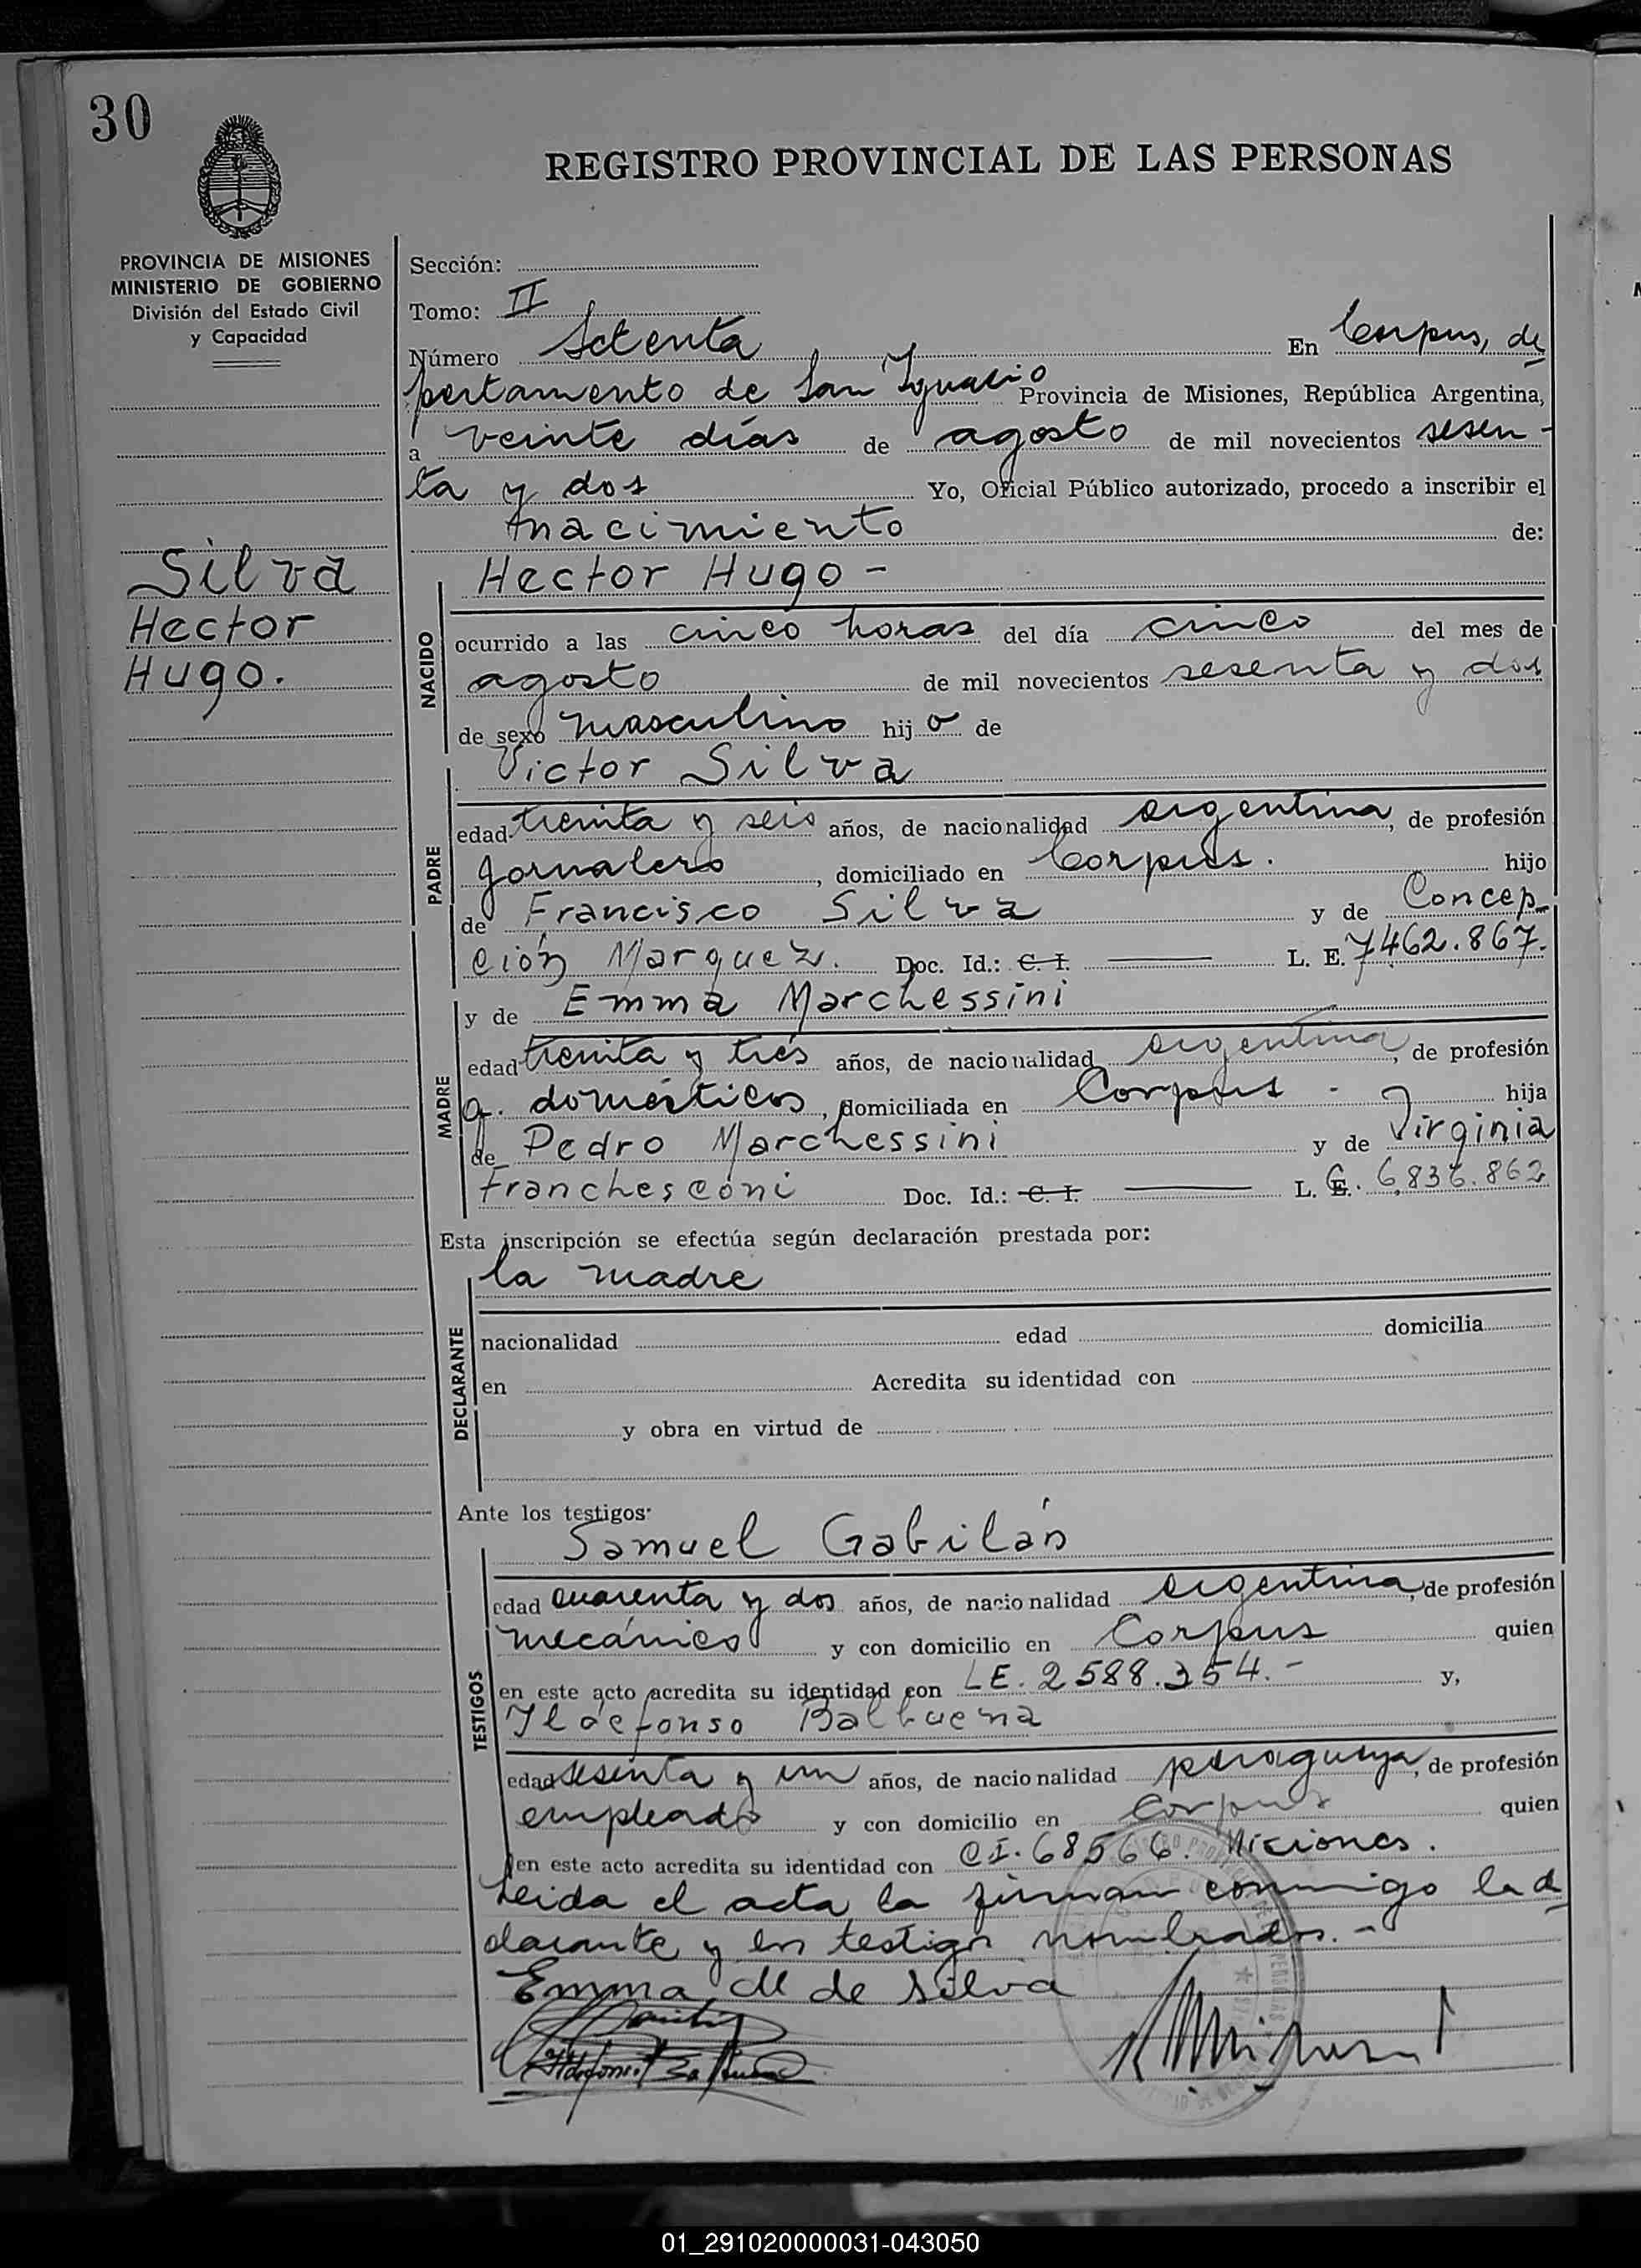 30
REGISTRO PROVINCIAL DE LAS PERSONAS
PROVINCIA DE MISIONES
MINISTERIO DE GOBIERNO
División del Estado Civil
y Capacidad
Silva
Hector
Hugo.
Sección:
Tomo: II
Número Setenta En Corpus, de
partamento de San Ignacio Provincia de Misiones, República Argentina,
a veinte días de agosto de mil novecientos sesen-
ta y dos Yo, Oficial Público autorizado, procedo a inscribir el
nacimiento de:
Hector Hugo -
NACIDO
ocurrido a las cinco horas del día cinco del mes de
agosto de mil novecientos sesenta y dos
de sexo masculino hijo de
Victor Silva
PADRE
edad treinta y seis años, de nacionalidad argentina, de profesión
Jornalero, domiciliado en Corpus. hijo
de Francisco Silva y de Concep-
ción Marquez. Doc. Id.: C. I. L. E. 7462.867.
y de Emma Marchessini
MADRE
edad treinta y tres años, de nacionalidad argentina, de profesión
q. domésticos, domiciliada en Corpus - hija
de Pedro Marchessini y de Virginia
Franchesconi Doc. Id.: C. I. L. C. 6,836.862
Esta inscripción se efectúa según declaración prestada por:
la madre
DECLARANTE
nacionalidad edad domicilia
en Acredita su identidad con
y obra en virtud de
Ante los testigos:
Samuel Gabilán
TESTIGOS
edad cuarenta y dos años, de nacionalidad argentina, de profesión
mecánico y con domicilio en Corpus quien
en este acto acredita su identidad con LE. 2588.354.- y,
Ildefonso Balbuena
edad sesenta y un años, de nacionalidad paraguaya, de profesión
empleado y con domicilio en Corpus quien
en este acto acredita su identidad con CI. 68566. Misiones.
Leida el acta la firman conmigo la de
clarante y los testigos nombrados.-
Emma M de Silva
Ildefonso Balbuena
01_291020000031-043050